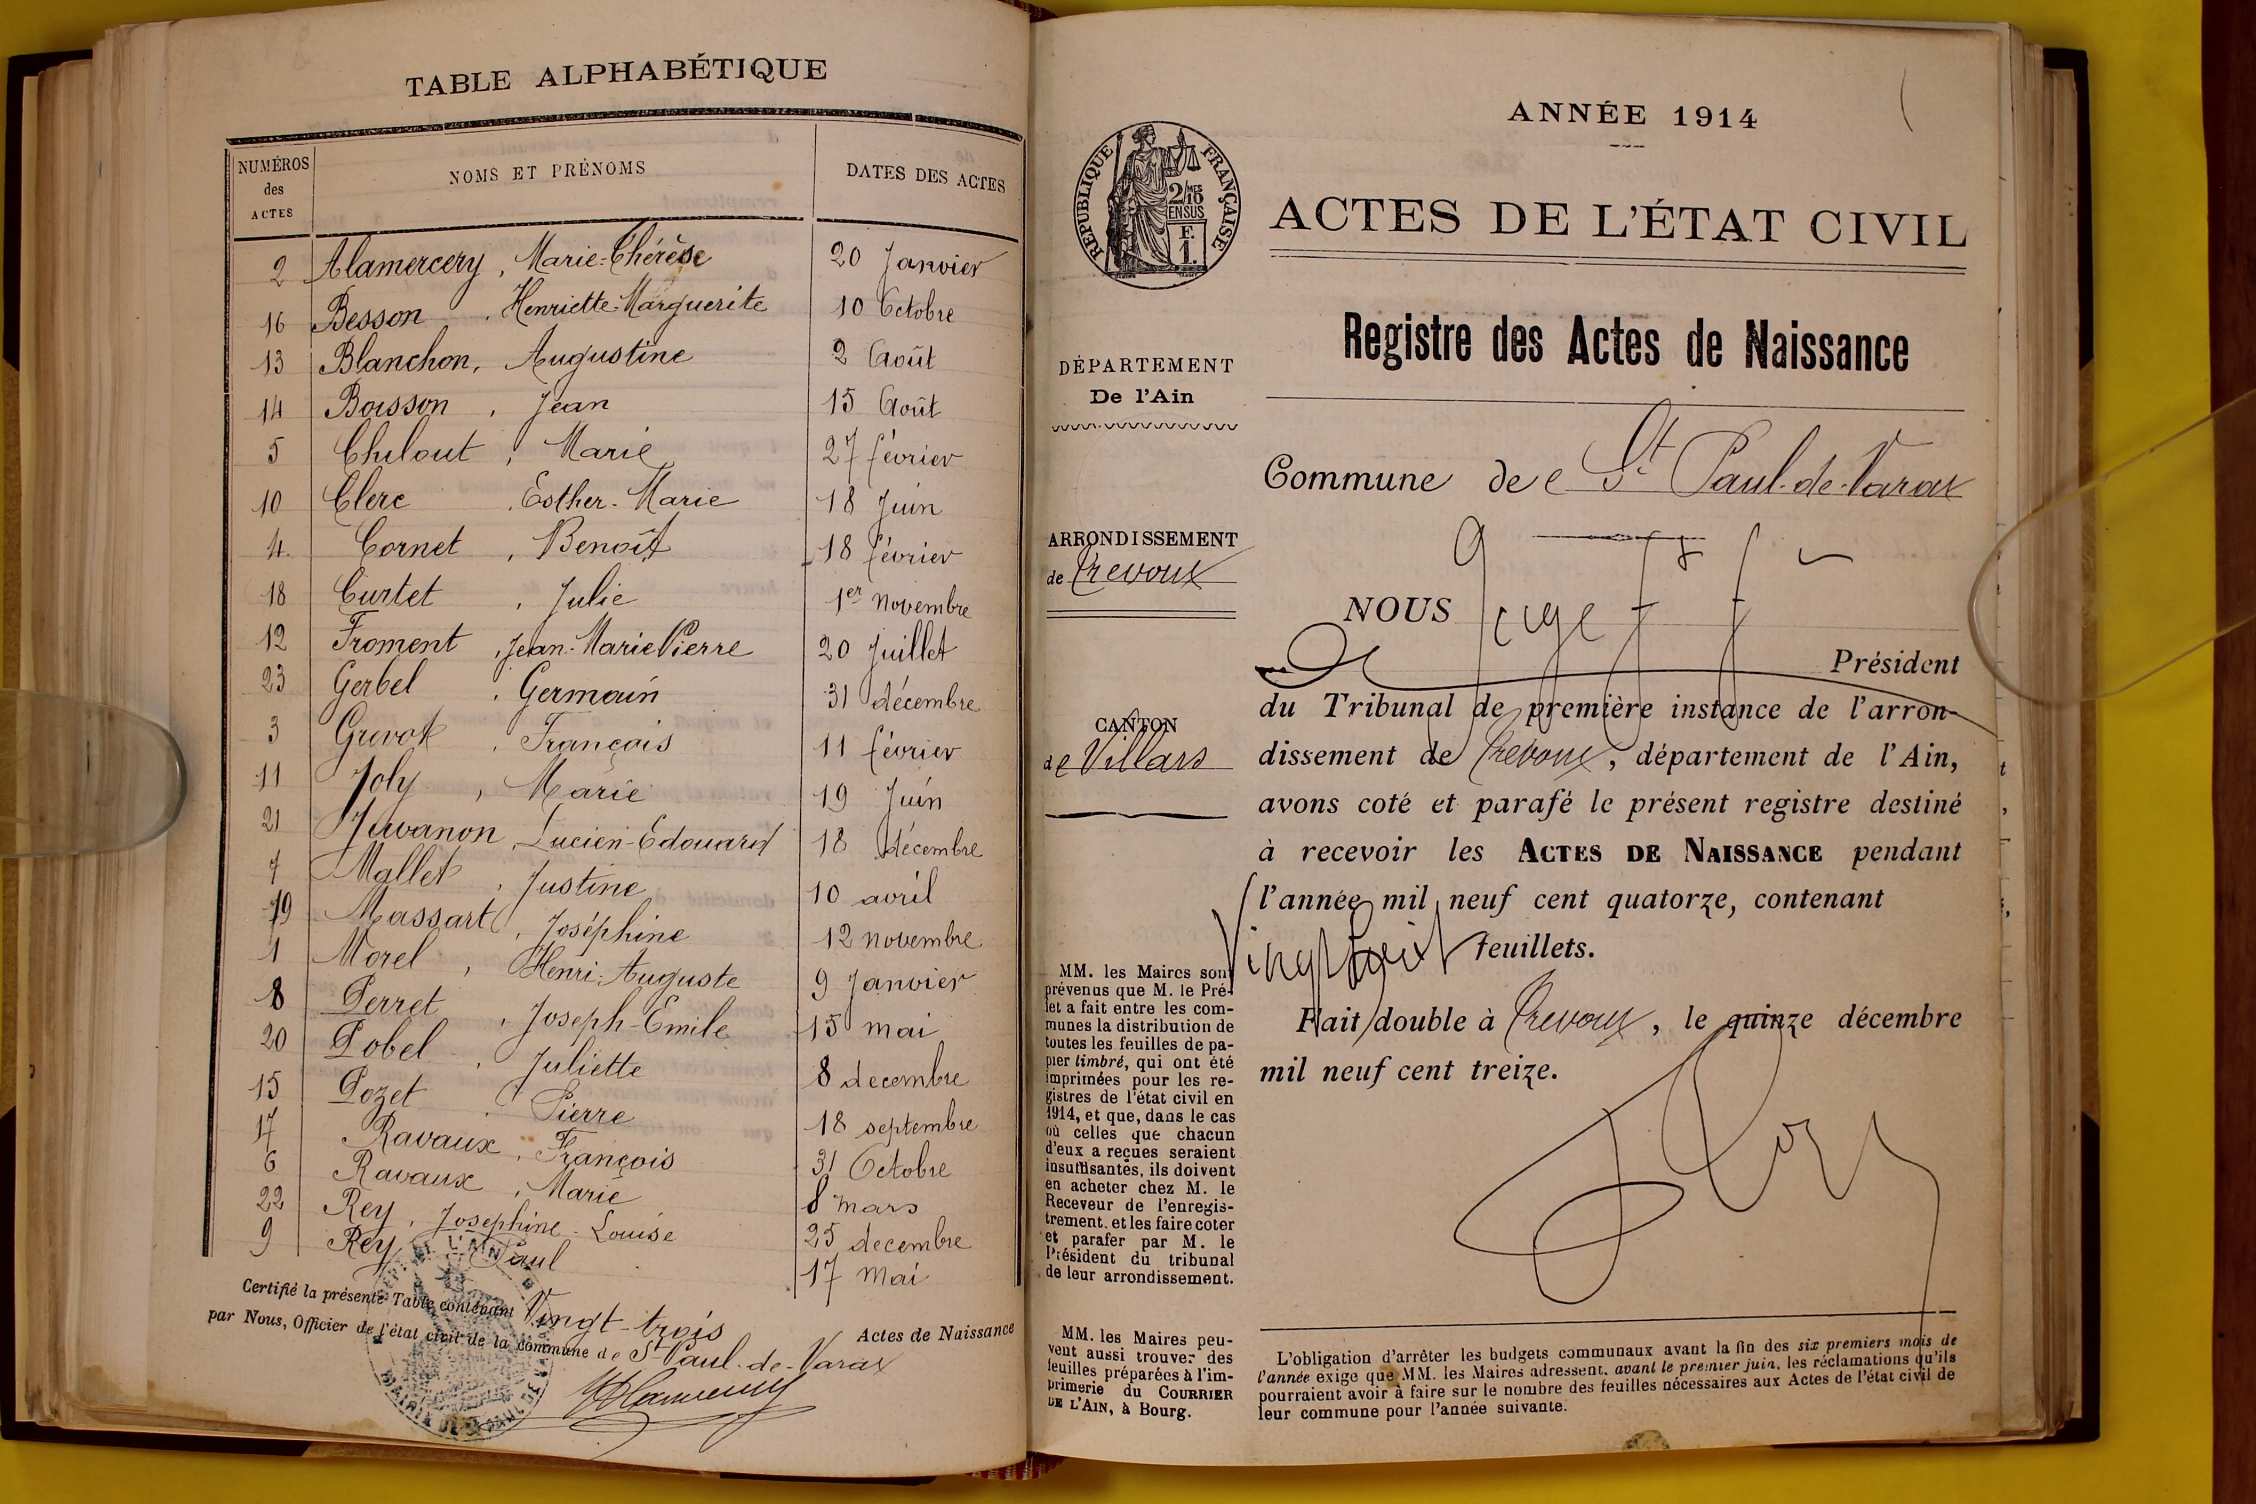 TABLE ALPHABÉTIQUE
NUMÉROS des ACTES NOMS ET PRÉNOMS DATES DES ACTES
2 Alamercery, Marie-Thérèse 20 Janvier
16 Besson, Henriette-Marguerite 10 Octobre
13 Blanchon, Augustine 2 Août
14 Boisson, Jean 15 Août
5 Chilout, Marie 27 février
10 Clerc, Esther-Marie 18 Juin
4 Cornet, Benoît 18 février
18 Curtet, Julie 1er novembre
12 Froment, Jean-Marie Pierre 20 Juillet
23 Gerbel, Germain 31 décembre
3 Grevot, François 11 février
11 Joly, Marie 19 Juin
21 Juvanon, Lucien-Edouard 18 décembre
7 Mallet, Justine 10 avril
19 Massart, Joséphine 12 novembre
1 Morel, Henri-Auguste 9 Janvier
8 Perret, Joseph-Emile 15 mai
20 Pobel, Juliette 8 decembre
15 Pozet, Pierre 18 septembre
17 Ravaux, François 31 Octobre
6 Ravaux, Marie 8 mars
22 Rey, Josephine-Louise 25 decembre
9 Rey, Paul 17 Mai
Certifié la présente Table contenant Vingt-trois Actes de Naissance
par Nous, Officier de l'état civil de la commune de St Paul-de-Varax
ANNÉE 1914
RÉPUBLIQUE FRANÇAISE
2/10 MES
EN SUS
F.
1.
ACTES DE L'ÉTAT CIVIL
Registre des Actes de Naissance
DÉPARTEMENT
De l'Ain
Commune de St Paul-de-Varax
ARRONDISSEMENT
de Trevoux
CANTON
de Villars
NOUS Juge
Président
du Tribunal de première instance de l'arron-
dissement de Trévoux, département de l'Ain,
avons coté et parafé le présent registre destiné
à recevoir les ACTES DE NAISSANCE pendant
l'année mil neuf cent quatorze, contenant
Vingt huit feuillets.
Fait double à Trevoux, le quinze décembre
mil neuf cent treize.
MM. les Maires sont
prévenus que M. le Pré-
fet a fait entre les com-
munes la distribution de
toutes les feuilles de pa-
pier timbré, qui ont été
imprimées pour les re-
gistres de l'état civil en
1914, et que, dans le cas
où celles que chacun
d'eux a reçues seraient
insuffisantes, ils doivent
en acheter chez M. le
Receveur de l'enregis-
trement, et les faire coter
et parafer par M. le
Président du tribunal
de leur arrondissement.
MM. les Maires peu-
vent aussi trouver des
feuilles préparées à l'im-
primerie du COURRIER
DE L'AIN, à Bourg.
L'obligation d'arrêter les budgets communaux avant la fin des six premiers mois de
l'année exige que MM. les Maires adressent, avant le premier juin, les réclamations qu'ils
pourraient avoir à faire sur le nombre des feuilles nécessaires aux Actes de l'état civil de
leur commune pour l'année suivante.